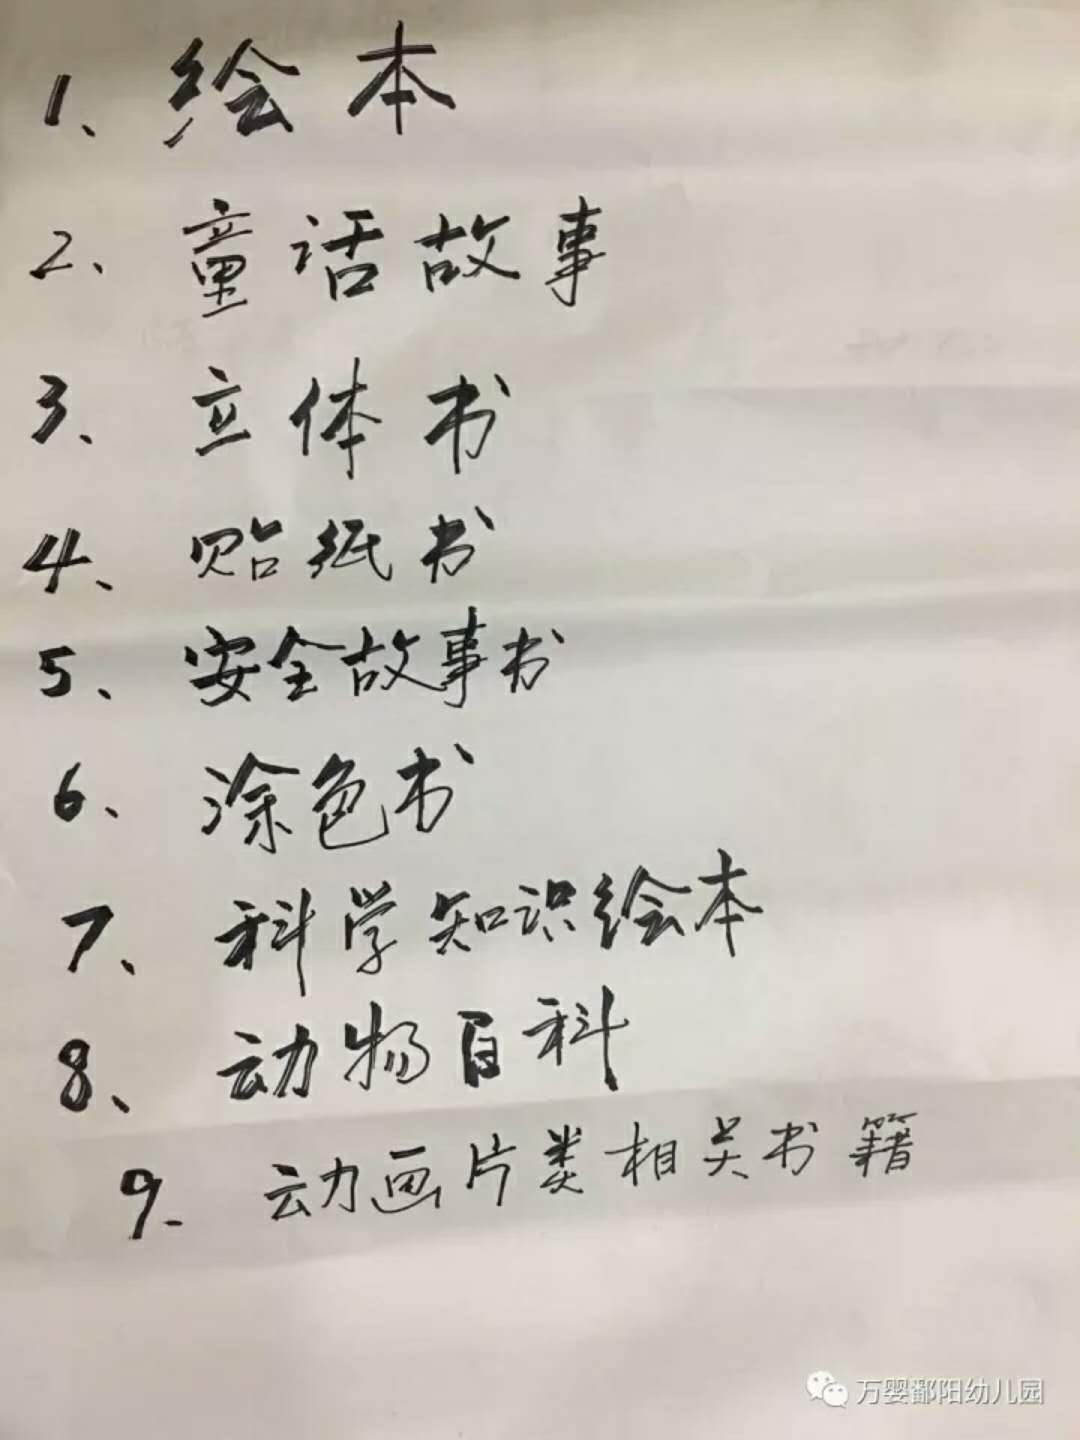 1、绘本
2、童话故事
3、立体书
4、贴纸书
5、安全故事书
6、涂色书
7、科学知识绘本
8、动物百科
9.动画片类相关书籍
万婴鄱阳幼儿园